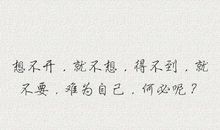 想不开，就不想，得不到，就
不要，难为自己，何必呢？